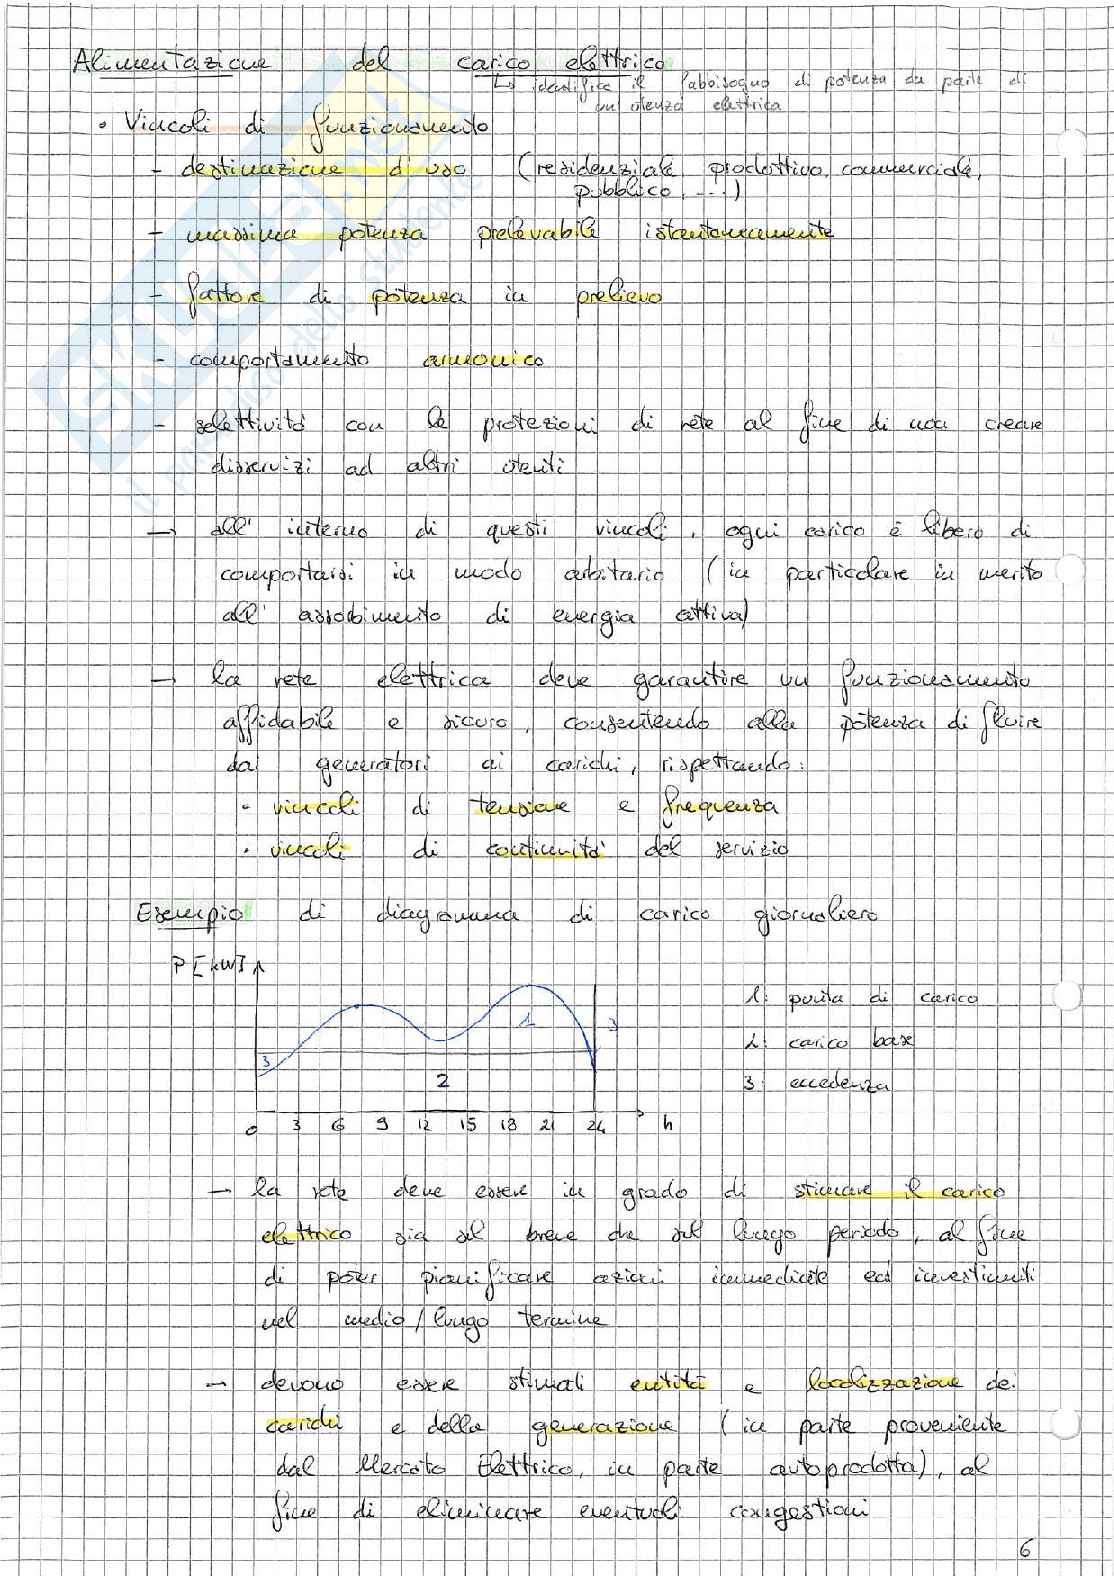 Alimentazione del carico elettrico
↳ identifica il fabbisogno di potenza da parte di
un utenza elettrica
• Vincoli di funzionamento
- destinazione d'uso (residenziale, produttivo, commerciale,
pubblico, ....)
- massima potenza prelevabile istantaneamente
- fattore di potenza in prelievo
- comportamento armonico
- selettività con le protezioni di rete al fine di non creare
disservizi ad altri utenti
→ all'interno di questi vincoli, ogni carico è libero di
comportarsi in modo arbitrario (in particolare in merito
all'assorbimento di energia attiva)
→ la rete elettrica deve garantire un funzionamento
affidabile e sicuro, consentendo alla potenza di fluire
dai generatori ai carichi, rispettando:
• vincoli di tensione e frequenza
• vincoli di continuità del servizio
Esempio di diagramma di carico giornaliero
P [kW]
1: punta di carico
2: carico base
3: eccedenza
1
3
3
2
0 3 6 9 12 15 18 21 24 h
→ la rete deve essere in grado di stimare il carico
elettrico sia sul breve che sul lungo periodo, al fine
di poter pianificare azioni immediate ed investimenti
nel medio/lungo termine
→ devono essere stimati entità e localizzazione dei
carichi e della generazione (in parte proveniente
dal Mercato Elettrico, in parte autoprodotta), al
fine di eliminare eventuali congestioni
6
SKUOLA.net
il paradiso dello studente